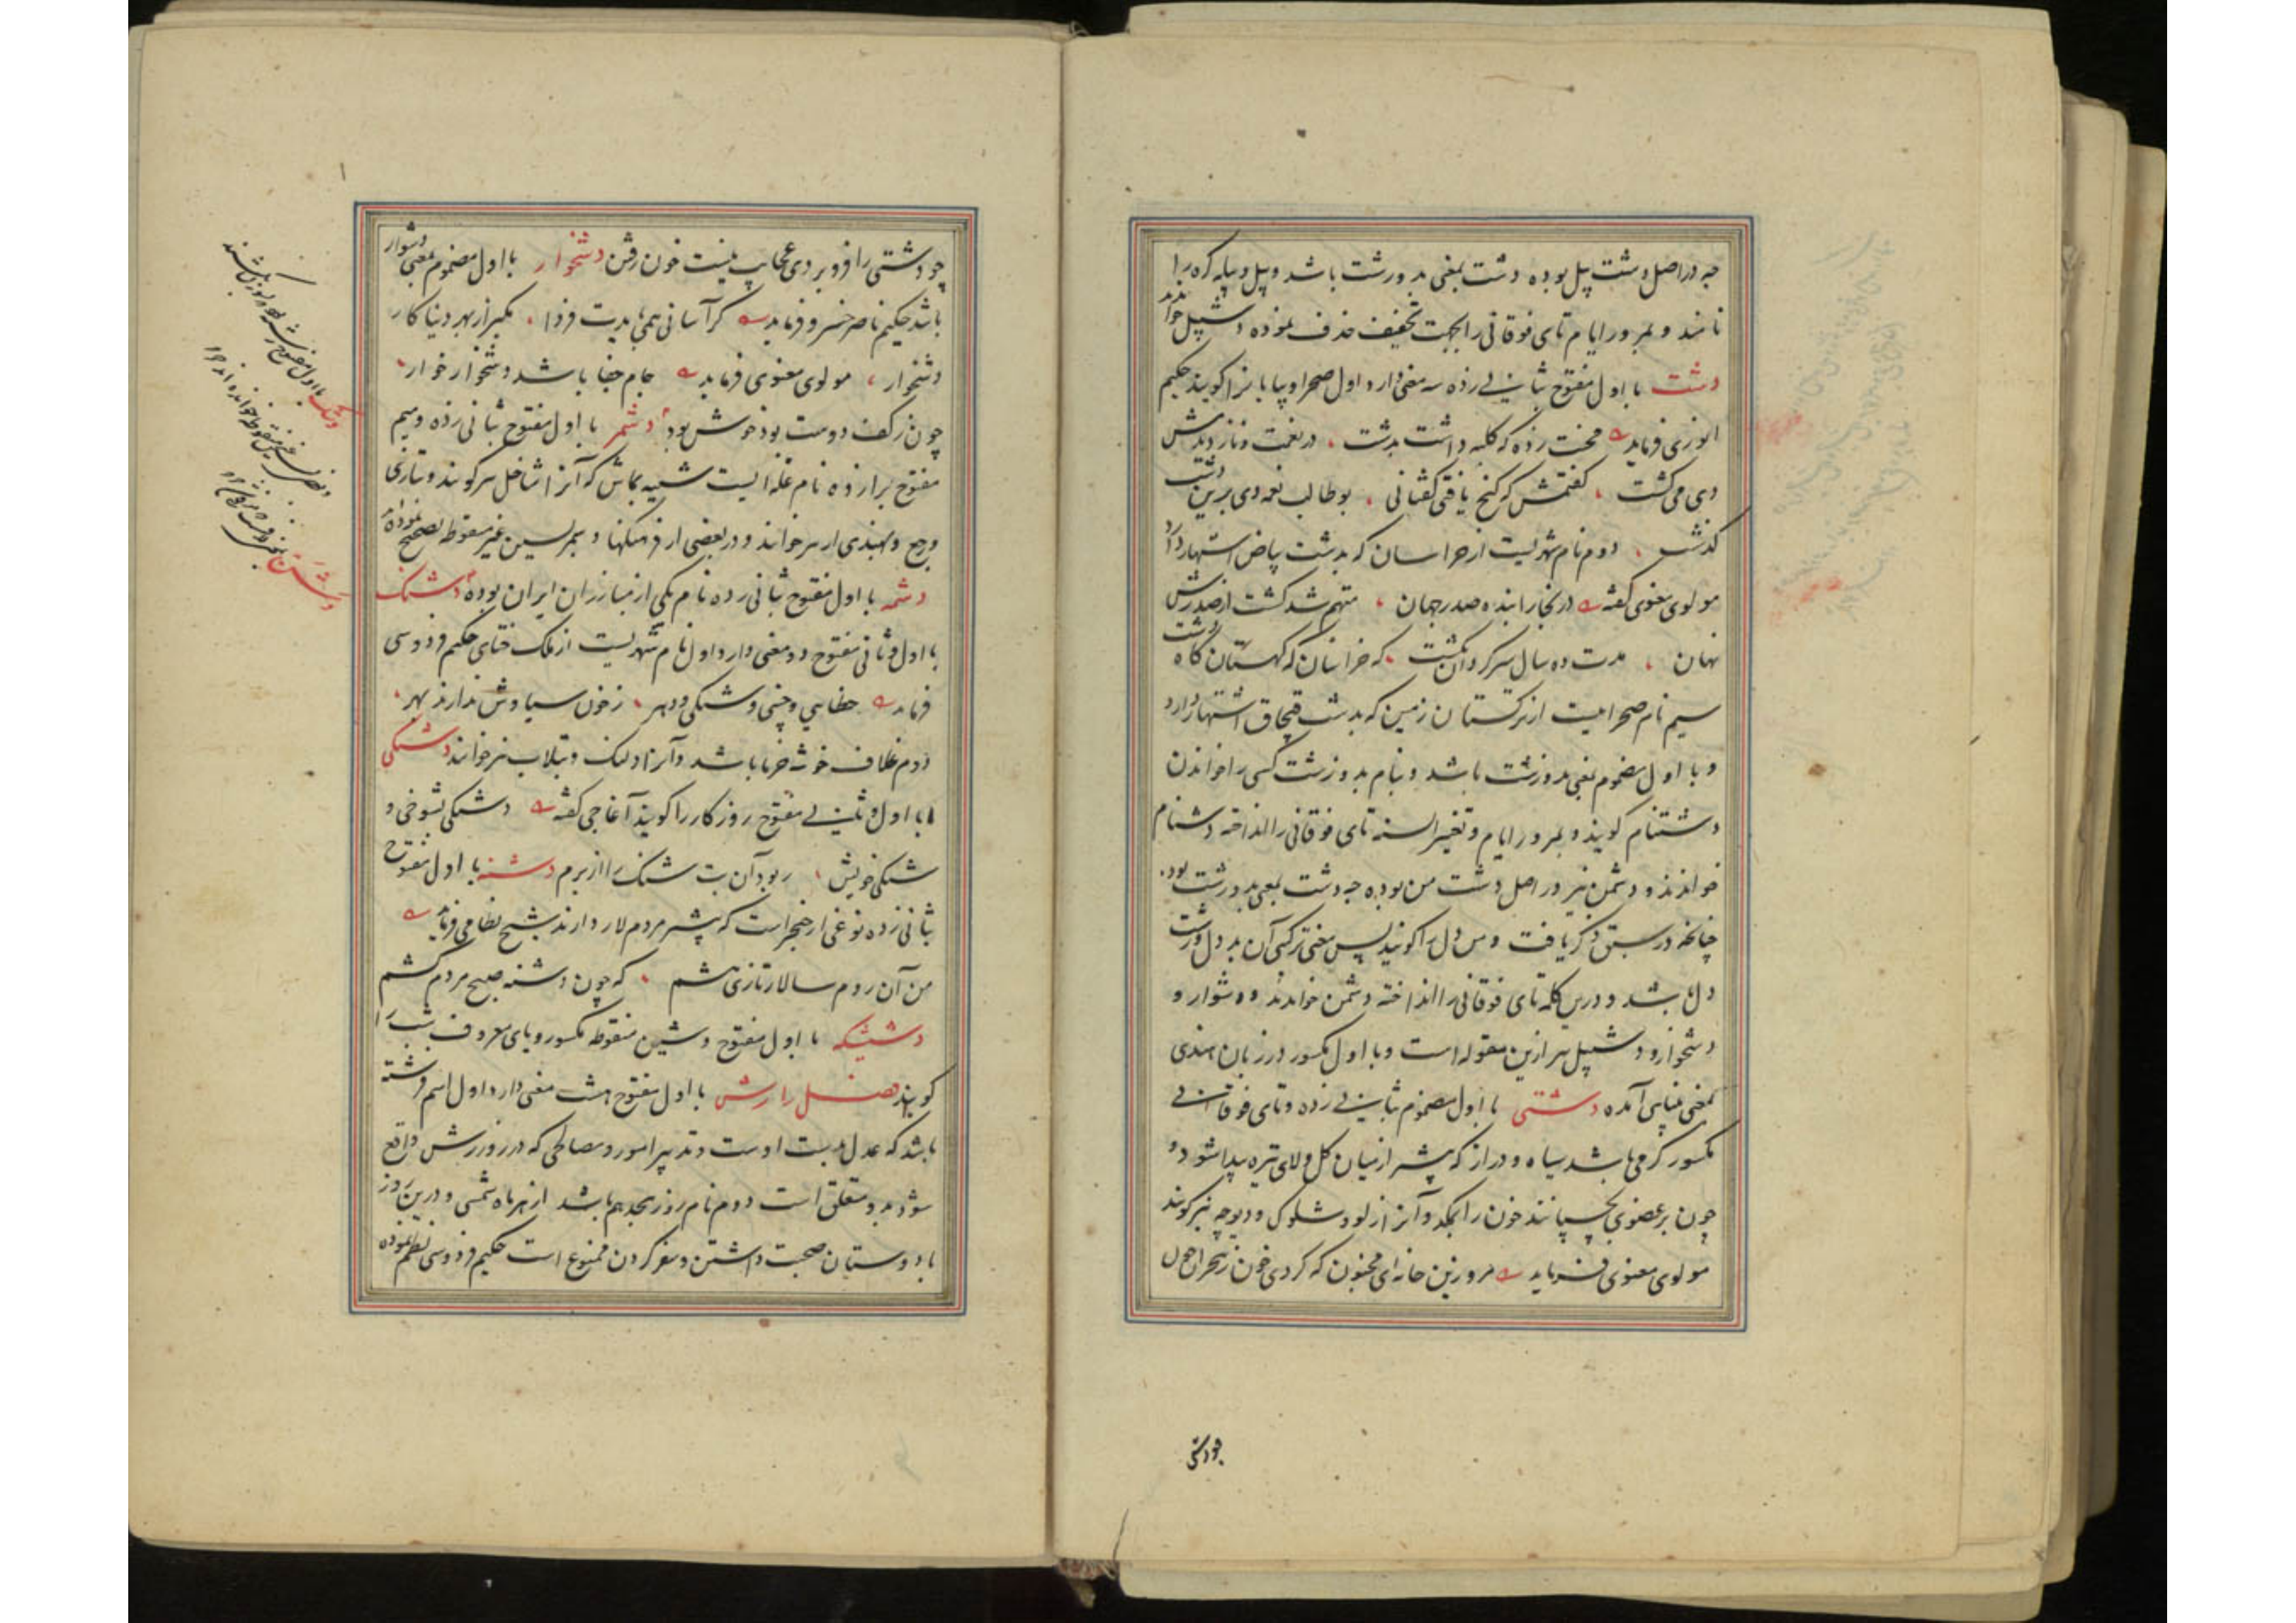 چه در اصل دشت پیل بوده دشت بمعنی بد و زشت باشد و پیل و پیله کره را
نامند و بمرور ایام تای فوقانی را بجهت تخفیف حذف نموده دشپیل خوانند
دشت با اول مفتوح بثانی زده سه معنی دارد اول صحرا و بیابانرا کویند حکیم
انوری فرماید محنت زده که کلبه داشت بدشت در نعمت و ناز دیدمش
دی می کشت کفتمش که کنج یافتی کفتا نی بوطالب نعمه دی برین دشت
کذشت دوم نام شهریست از خراسان که بدشت بیاض اشتهار دارد
مولوی معنوی کفته در بخارا بنده صدر جهان متهم شد کشت از صدرش
نهان مدت ده سال سرکردان بکشت که خراسان که کهستان کاه دشت
سیم نام صحراییست از ترکستان زمین که بدشت قبچاق اشتهار دارد
و با اول مضموم بمعنی بد و زشت باشد و بنام بد و زشت کسی را خواندن
دشتنام کویند و بمرور ایام و تغییر السنه تای فوقانی را انداخته دشنام
خوانند و دشمن نیز در اصل دشت من بوده چه دشت بمعنی بد و زشت بود
چنانچه در سبق ذکر یافت و من دل را کویند پس معنی ترکیبی آن بد دل و زشت
دل باشد و درین کلمه تای فوقانی را انداخته دشمن خوانند و دشوار و
دشخوار و دشپیل نیز ازین مقوله است و با اول مکسور در زبان هندی
بمعنی بینایی آمده دشتی با اول مضموم بثانی زده و تای فوقانی
مکسور کرمی باشد سیاه و دراز که بیشتر از میان کل و لای تیره پیدا شود و
چون بر عضوی بچسپانند خون را بمکد و آنرا زلو و شلوک و دیوچه نیز کویند
مولوی معنوی فرماید مرو زین خانه ای مجنون که کردی خون ز هجران چون
چو دشتی
چو دشتی را فرو بردی عجایب نیست خون رفتن دشخوار با اول مضموم بمعنی دشوار
باشد حکیم ناصر خسرو فرماید کر آسانی همی بایدت فردا مکیر از بهر دنیا کار
دشخوار مولوی معنوی فرماید جام جفا باشد دشخوار خوار
چون ز کف دوست بود خوش بود دشمر با اول مفتوح بثانی زده و میم
مفتوح برا زده نام غله ایست شبیه بماش که آنرا شاخل نیز کویند و بتازی
و بهندی ارهر خوانند و در بعضی از فرهنکها دسمر بسین غیر منقوطه تصحیح نموده
دشمه با اول مفتوح بثانی زده نام یکی از مبارزان ایران بوده دشنک
با اول و ثانی مفتوح دو معنی دارد اول نام شهریست از ملک ختای حکیم فردوسی
فرماید ختایی و چینی و دشنکی و دهر ز خون سیاوش ندارند بهر
دوم غلاف خوشه خرما باشد و آنرا دلنک و تبلاب نیز خوانند دشنکی
با اول و ثانی مفتوح روزکار را کویند آغاجی کفته دشنکی بشوخی و
شنکی خویش ربود آن بت شنک را از برم دشنه با اول مفتوح
بثانی زده نوعی از خنجر است که بیشتر مردم لار دارند شیخ نظامی فرماید
من آن روم سالار تازی هشم که چون دشنه صبح مردم کشم
با اول مفتوح و شین منقوطه مکسور و یای معروف شب را
کویند فصل را رش با اول مفتوح هشت معنی دارد اول اسم فرشته
باشد که عدل بدست اوست و تدبیر امور و مصالحی که در روز رش واقع
شود بدو متعلق است دوم نام روز هجدهم باشد از هر ماه شمسی و درین روز
با دوستان صحبت داشتن و سفر کردن ممنوع است حکیم فردوسی نظم نموده